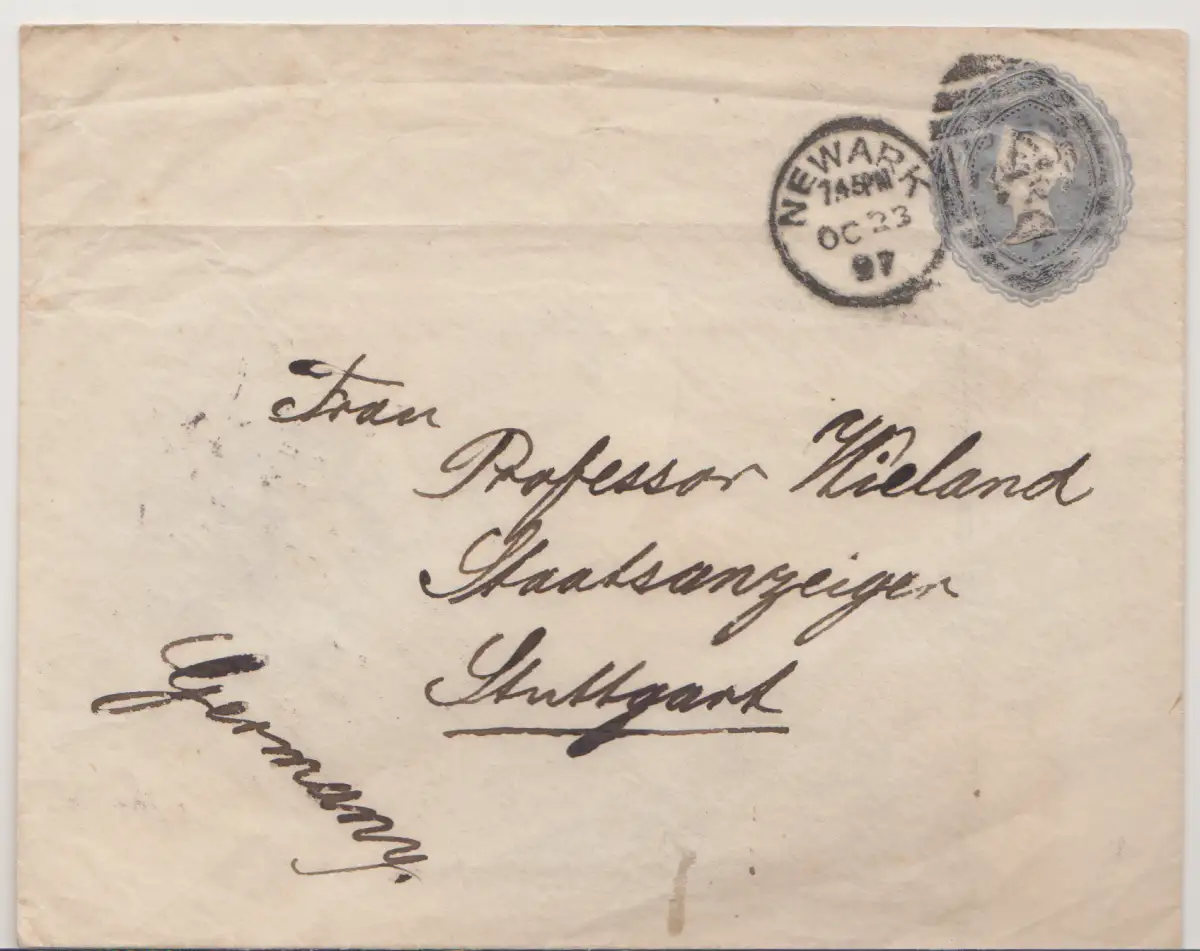 NEWARK
745PM
OC 23
97
Frau
Professor Wieland
Staatsanzeiger
Stuttgart
Germany.